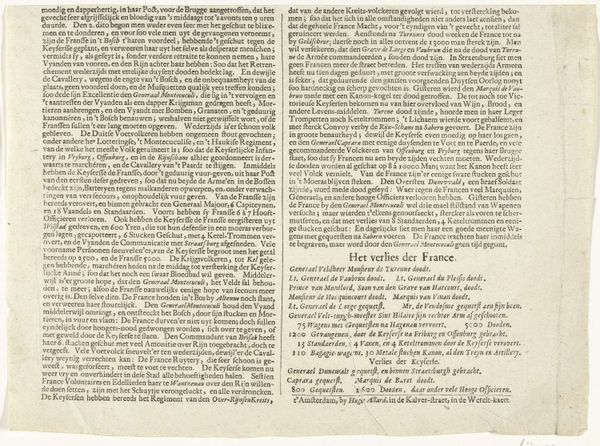 moedig en dapperhertig, in haar Post, voor de Brugge aangetroffen, dat het
gevecht seer afgrijsselijk en bloedig van 's middags tot 's avonts ten 9 uren
duurde. Den 2. dito begon men weder even sier met het geschut te blixe-
men en te donderen, en voor soo vele men uyt de gevangenen verneemt,
zijn de Fransse in 't Bosch t'haren voordeel, hebbende 't geschut tegen de
Keyserse geplant, en verweeren haar uyt het selve als desperate menschen;
vermids sy, als geseyt is, sonder verdere retraite te konnen nemen, hare
Vyanden van vooren, en den Rijn achter haar hebben: Soo dat het Retren-
chement wederzijds met ettelijcke duysent dooden bedekt lag. En dewijle
de Cavallery, wegens de engte van 't Bosch, en de onbequaamheyt van de
plaats, geen voordeel doen, en de Musquetten qualijk yets treffen konden;
soo dede sijn Excellentie den Generaal Montecuculi, die sig in 't vervolgen en
't aantreffen der Vyanden als een dapper Krijgsman gedragen heeft, Mor-
tieren aanbrengen, en den Vyandt met Bomben, Granaten, en 't geduurig
kanonneren, in 't Bosch benauwen, weshalven niet getwijffelt wort, of de
Franssen sullen 't eer lang moeten opgeven. Wederzijds is'er schoon volk
gebleven. De Duitse Voetvolkeren hebben ongemeen stout gevochten;
onder andere het Lotteringse, 't Montecuculise, en 't Haukise Regiment;
van de welke het meeste Volk geruïneert is; soo dat de Keyserlijke Infan-
tery in Fryburg, Offenburg, en in de Rijnschans alhier geordonneert is der-
waarts te marcheren, en de Cavallery van 't Paarde te stijgen. Inmiddels
hebben de Keyserse de Fransse, door 't geduurig vuur-geven, uit haar Post
van den eersten deser gedreven; soo dat nu beyde de Armeën in de Bossen
bedekt zijn, Batteryen tegens malkanderen opwerpen, en, onder verwach-
tingen van versche secours, onophoudelijk vuur geven. Van de Fransse zijn
bereids verovert, en binnen gebracht een Generaal Majoor, 6 Capiteynen,
en 18 Vaandels en Standaarden. Voorts hebben sy Fransse 6 à 7 Hooft-
Officieren verloren. Ook hebben de Keyserse de Fransse eergisteren uyt
Wilstad gedreven, en 600 Yren, die tot hun defensie in een moeras verbor-
gen lagen, gecapotteert, 6 Stucken Geschut, met 4 Ketel-Trommen vero-
vert, en de Vyanden de Communicatie met Straatsburg afgesneden. Vele
voorname Personen sneuvelen'er, van de Keyserse begroot men het getal
bereids op 2500, en de Fransse 5000. De Krijgsvolkeren, tot Kel gele-
gen hebbende, marcheren heden na de middag tot versterking der Keyser-
lijke Armé; soo dat het noch een swaar Bloedbad wil geven. Middeler-
wijl is'er groote hoop, dat den Generaal Montecuculi, het Velds sal behou-
den, te meer, alsoo de Fransse nauwelijks eenige hope van secours meer
overig is. Den selve dito. De France houden in 't Bos by Altenum noch stant,
en verweeren haar stoutelijk. Den Generaal Montecuculi houd den Vyand
middelerwijl omringt, en ontsteekt het Bosch, door sijn stucken en Mor-
tieren, in vuur en vlam: De France durven'er niet uyt komen; doch sullen
eyndelijk door hongers-nood gedwongen worden, sich over te geven, of
met geweld door de Keyserse te slaan. Den Commandant van Brisak heeft
haar 6 stucken geschut met veel Amonitie over Rijn toegebracht, doch te
vergeefs. Vele Voetvolk sneuvelt'er ten wederzijden, dewijl'er de Caval-
lery weynig verrechten kan: De France Ruytery, die seer schoon is ge-
weest, was gedwongen, veel te voete te vechten. De Keyserse komen nu
weer vry en onverhindert in dese Stad alle behoeftigheden halen. Sestien
France Volontaires en Edellieden hare te Wantzenau over den Rijn willen-
de doen setten, zijn met het Schuytje versogelucht, en alle verdroncken.
De Keysersen hebben bereeds het Regiment van den Over-Rijnsen Kreits,
dat van andere Kreits-volckeren gevolgt wierd, tot versterking beko-
men; soo dat het sich in alle omstandigheden niet anders laet aensien, dan
dat de geheele France Macht, voor 't eyndigen van 't gevecht, totaliter sal
geruïneert werden. Aenstonds na Turennes dood weeken de France tot na
by Goldscheier, diese noch in alles omtrent de 12000 man sterck zijn. Men
wil versekeren, dat den Grave de Lorge en Vaubrun die na de dood van Turen-
ne de Armée commandeerden, sonden dood zijn. In Straetsburg siet men
geen Fransen meer de straet betreden. Het treffen van wederzijds Armeen
heeft nu tien dagen geduurt, met groote verswacking aen beyde zijden; en
is seker, dat geduurende den gantsen voorgaenden Duytsen Oorlog nooyt
soo hardneckig en scherp gevochten is. Gisteren wierd den Marquis de Vau-
brun mede met een Kanon-kogel ter dood gebracht. De tot noch toe Vic-
torieuse Keysersen bekomen nu van hier overvloed van Wijn, Brood, en
andere Levens-middelen. Turenne dood zijnde, hoorde men in haer Leger
Trompetten noch Keteltrommen, 't Lichaem wierde voort gebalsemt, en
met sterck Convoy verby de Rijn-Schans na Savern gevoert. De France zijn
in groote benaeuwtheyd; dewijl de Keyserse even moedig op haer losgaen,
en den Generaal Caprara met eenige duysenden te Voet en te Paerde, en vele
gecommandeerde Volckeren van Offenburg en Fryburg tegens haer Brugge
staet, soo dat sy Fransen nu aen beyde zijden vechten moeten. Wederzijd-
se dooden worden al geschat op 8 à 10000 Man; want het Kanon heeft seer
veel Volck vernielt. Van de France zijn'er eenige swaere stucken geschut
in 't Moerasblijven steken. Den Oversten Dunewald, een braef Soldaet
zijnde, word mede dood geseyd: Waer tegen de Fransen veel Marquisen,
Generaels, en andere hooge Officieren verlooren hebben. Gisteren hebben
de France by den Generaal Montecuculi wel drie mael stilstand van Wapenen
versocht; maer wierden t'elkens gerenvoiseert, stercker als vooren te scher-
mutseren, en dat met verlies van 8 Standaerden, 4 Ketel-trommen en eeni-
ge stucken geschut: En dagelijcks siet men haer een goede menigte Wa-
gens met gequetsten na Saberen voeren. De France reecken haer inmiddels
te begraven, maer word door den Generaal Montecuculi geen tijd gegunt.
Het verlies der France.
Generael Veldtheer Monsieur de Turenne doodt.
Lt. Generael de Vaubrun doodt. Lt. Generael du Plessis doodt.
Prince van Montbord, Soon van den Grave van Harcourt, doodt.
Monsieur de Hocquincourt doodt. Marquis van Vinau doodt.
Lt. Generael de Lorge gequetst. Mr. de Vendosme gequetst aen sijn been.
Generael Velt-tuygh-meester Sint Hilaire sijn rechter Arm af geschooten.
75 Wagens met Gequetsten na Hagenau vervoert. 5000 Dooden.
1200 Gevangenen, daer de Keyserse na Friburg en Offenburg gebracht.
13 Standaerden, 4 Vanen, en 4 Keteltrommen door de Keyserse verovert.
110 Bagagie-wagens, 10 Metale stucken Kanon, al den Treyn en Artillery.
Verlies der Keyserse.
Generael Dunewalt gequetst, en binnen Straetsburgh gebracht.
Caprara gequetst. Marquis de Baret doodt.
800 Gequetsten. 2500 Dooden, daer onder vele Hooge Officieren.
t'Amsterdam, by Hugo Allard, in de Kalver-straet, in de Werelt-kaert.